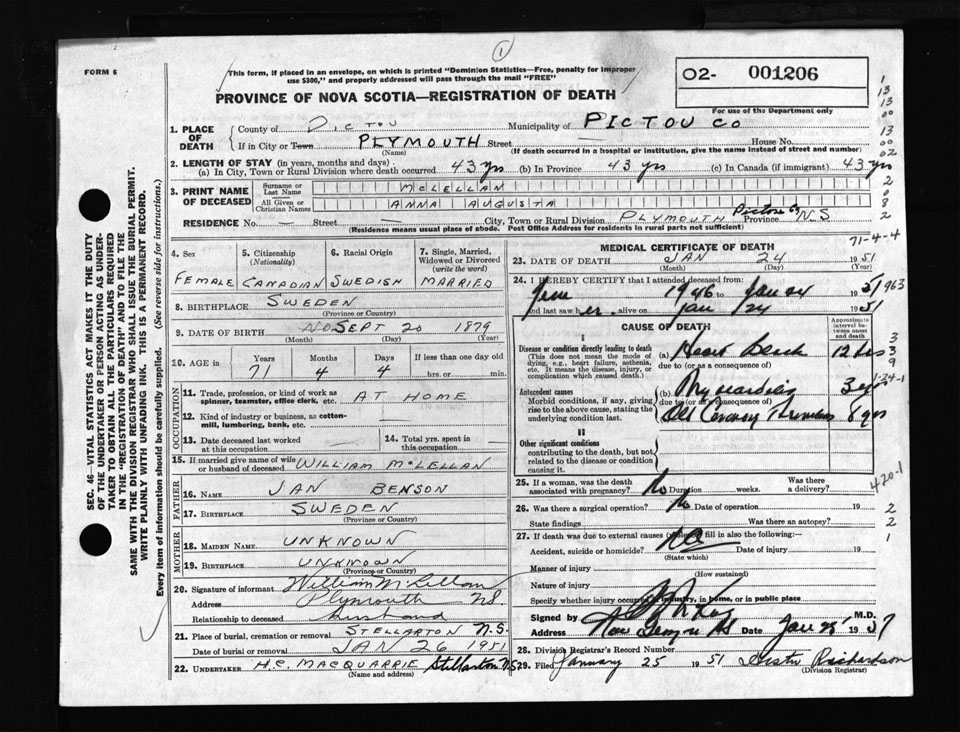 1
FORM 6
This form, if placed in an envelope, on which is printed "Dominion Statistics—Free, penalty for improper
use $300," and properly addressed will pass through the mail "FREE"
02- 001206
For use of the Department only
PROVINCE OF NOVA SCOTIA—REGISTRATION OF DEATH
1. PLACE OF DEATH
County of PICTOU Municipality of PICTOU CO
If in City or Town PLYMOUTH Street House No.
(Name) (If death occurred in a hospital or institution, give the name instead of street and number)
2. LENGTH OF STAY (in years, months and days)
(a) In City, Town or Rural Division where death occurred 43 yrs (b) In Province 43 yrs (c) In Canada (if immigrant) 43 yrs
3. PRINT NAME OF DECEASED
Surname or Last Name McLELLAN
All Given or Christian Names ANNA AUGUSTA
RESIDENCE No. — Street — City, Town or Rural Division PLYMOUTH Pictou Co Province N.S
(Residence means usual place of abode. Post Office Address for residents in rural parts not sufficient)
4. Sex FEMALE
5. Citizenship (Nationality) CANADIAN
6. Racial Origin SWEDISH
7. Single, Married, Widowed or Divorced (write the word) MARRIED
8. BIRTHPLACE SWEDEN
(Province or Country)
9. DATE OF BIRTH SEPT 20 1879
(Month) (Day) (Year)
10. AGE in Years Months Days If less than one day old
71 4 4 hrs. or min.
OCCUPATION
11. Trade, profession, or kind of work as spinner, teamster, office clerk, etc. AT HOME
12. Kind of industry or business, as cotton-mill, lumbering, bank, etc.
13. Date deceased last worked at this occupation —
14. Total yrs. spent in this occupation —
15. If married give name of wife or husband of deceased WILLIAM McLELLAN
FATHER
16. NAME JAN BENSON
17. BIRTHPLACE SWEDEN
(Province or Country)
MOTHER
18. MAIDEN NAME UNKNOWN
19. BIRTHPLACE UNKNOWN
(Province or Country)
20. Signature of informant William McLellan
Address Plymouth NS.
Relationship to deceased husband
21. Place of burial, cremation or removal STELLARTON N.S.
Date of burial or removal JAN 26 1951
22. UNDERTAKER H.C. MACQUARRIE Stellarton N.S.
(Name and address)
MEDICAL CERTIFICATE OF DEATH 71-4-4
23. DATE OF DEATH JAN 24 1951
(Month) (Day) (Year)
24. I HEREBY CERTIFY that I attended deceased from:
1946 to Jan 24 1951
and last saw her alive on Jan 24 1951
CAUSE OF DEATH
Approximate interval between onset and death
I
Disease or condition directly leading to death
(This does not mean the mode of dying, e.g., heart failure, asthenia, etc. It means the disease, injury, or complication which caused death.)
(a) Heart Block 12 hrs
due to (or as a consequence of)
Antecedent causes
Morbid conditions, if any, giving rise to the above cause, stating the underlying condition last.
(b) 3 yrs
due to (or as a consequence of)
Old Coronary Thrombosis
II
Other significant conditions
contributing to the death, but not related to the disease or condition causing it.
25. If a woman, was the death associated with pregnancy? No Duration weeks. Was there a delivery?
26. Was there a surgical operation? No Date of operation 19
State findings Was there an autopsy?
27. If death was due to external causes fill in also the following:—
Accident, suicide or homicide? No Date of injury 19
(State which)
Manner of injury
(How sustained)
Nature of injury
Specify whether injury occurred in industry, in home, or in public place
Signed by M.D.
Address New Glasgow NS Date Jan 19
28. Division Registrar's Record Number
29. Filed January 25 1951 Richardson
(Division Registrar)
SEC. 46—VITAL STATISTICS ACT MAKES IT THE DUTY
OF THE UNDERTAKER OR PERSON ACTING AS UNDER-
TAKER TO OBTAIN ALL THE PARTICULARS REQUIRED
IN THE "REGISTRATION OF DEATH" AND TO FILE THE
SAME WITH THE DIVISION REGISTRAR WHO SHALL ISSUE THE BURIAL PERMIT.
WRITE PLAINLY WITH UNFADING INK. THIS IS A PERMANENT RECORD.
Every item of information should be carefully supplied. (See reverse side for instructions.)
420.1